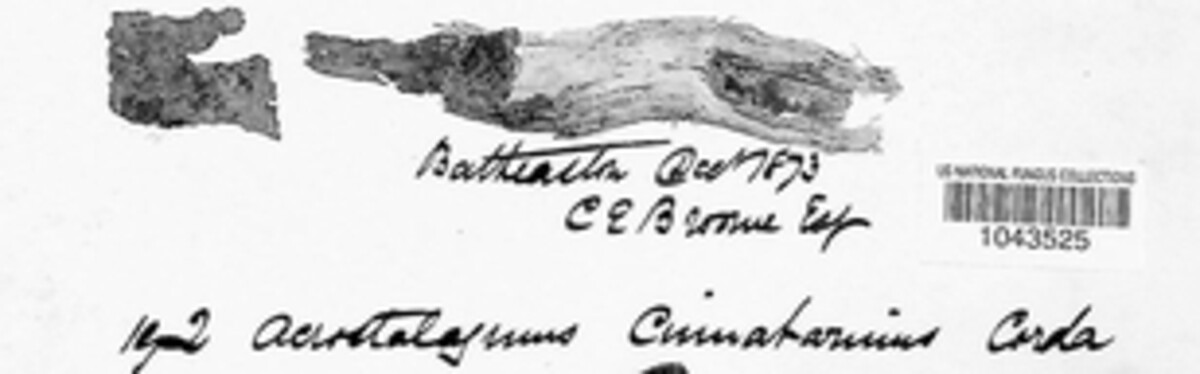 Batheaston Oct 1873
C E Broome Esq
US NATIONAL FUNGUS COLLECTIONS
1043525
192 Acrostalagmus Cinnabarinus Corda